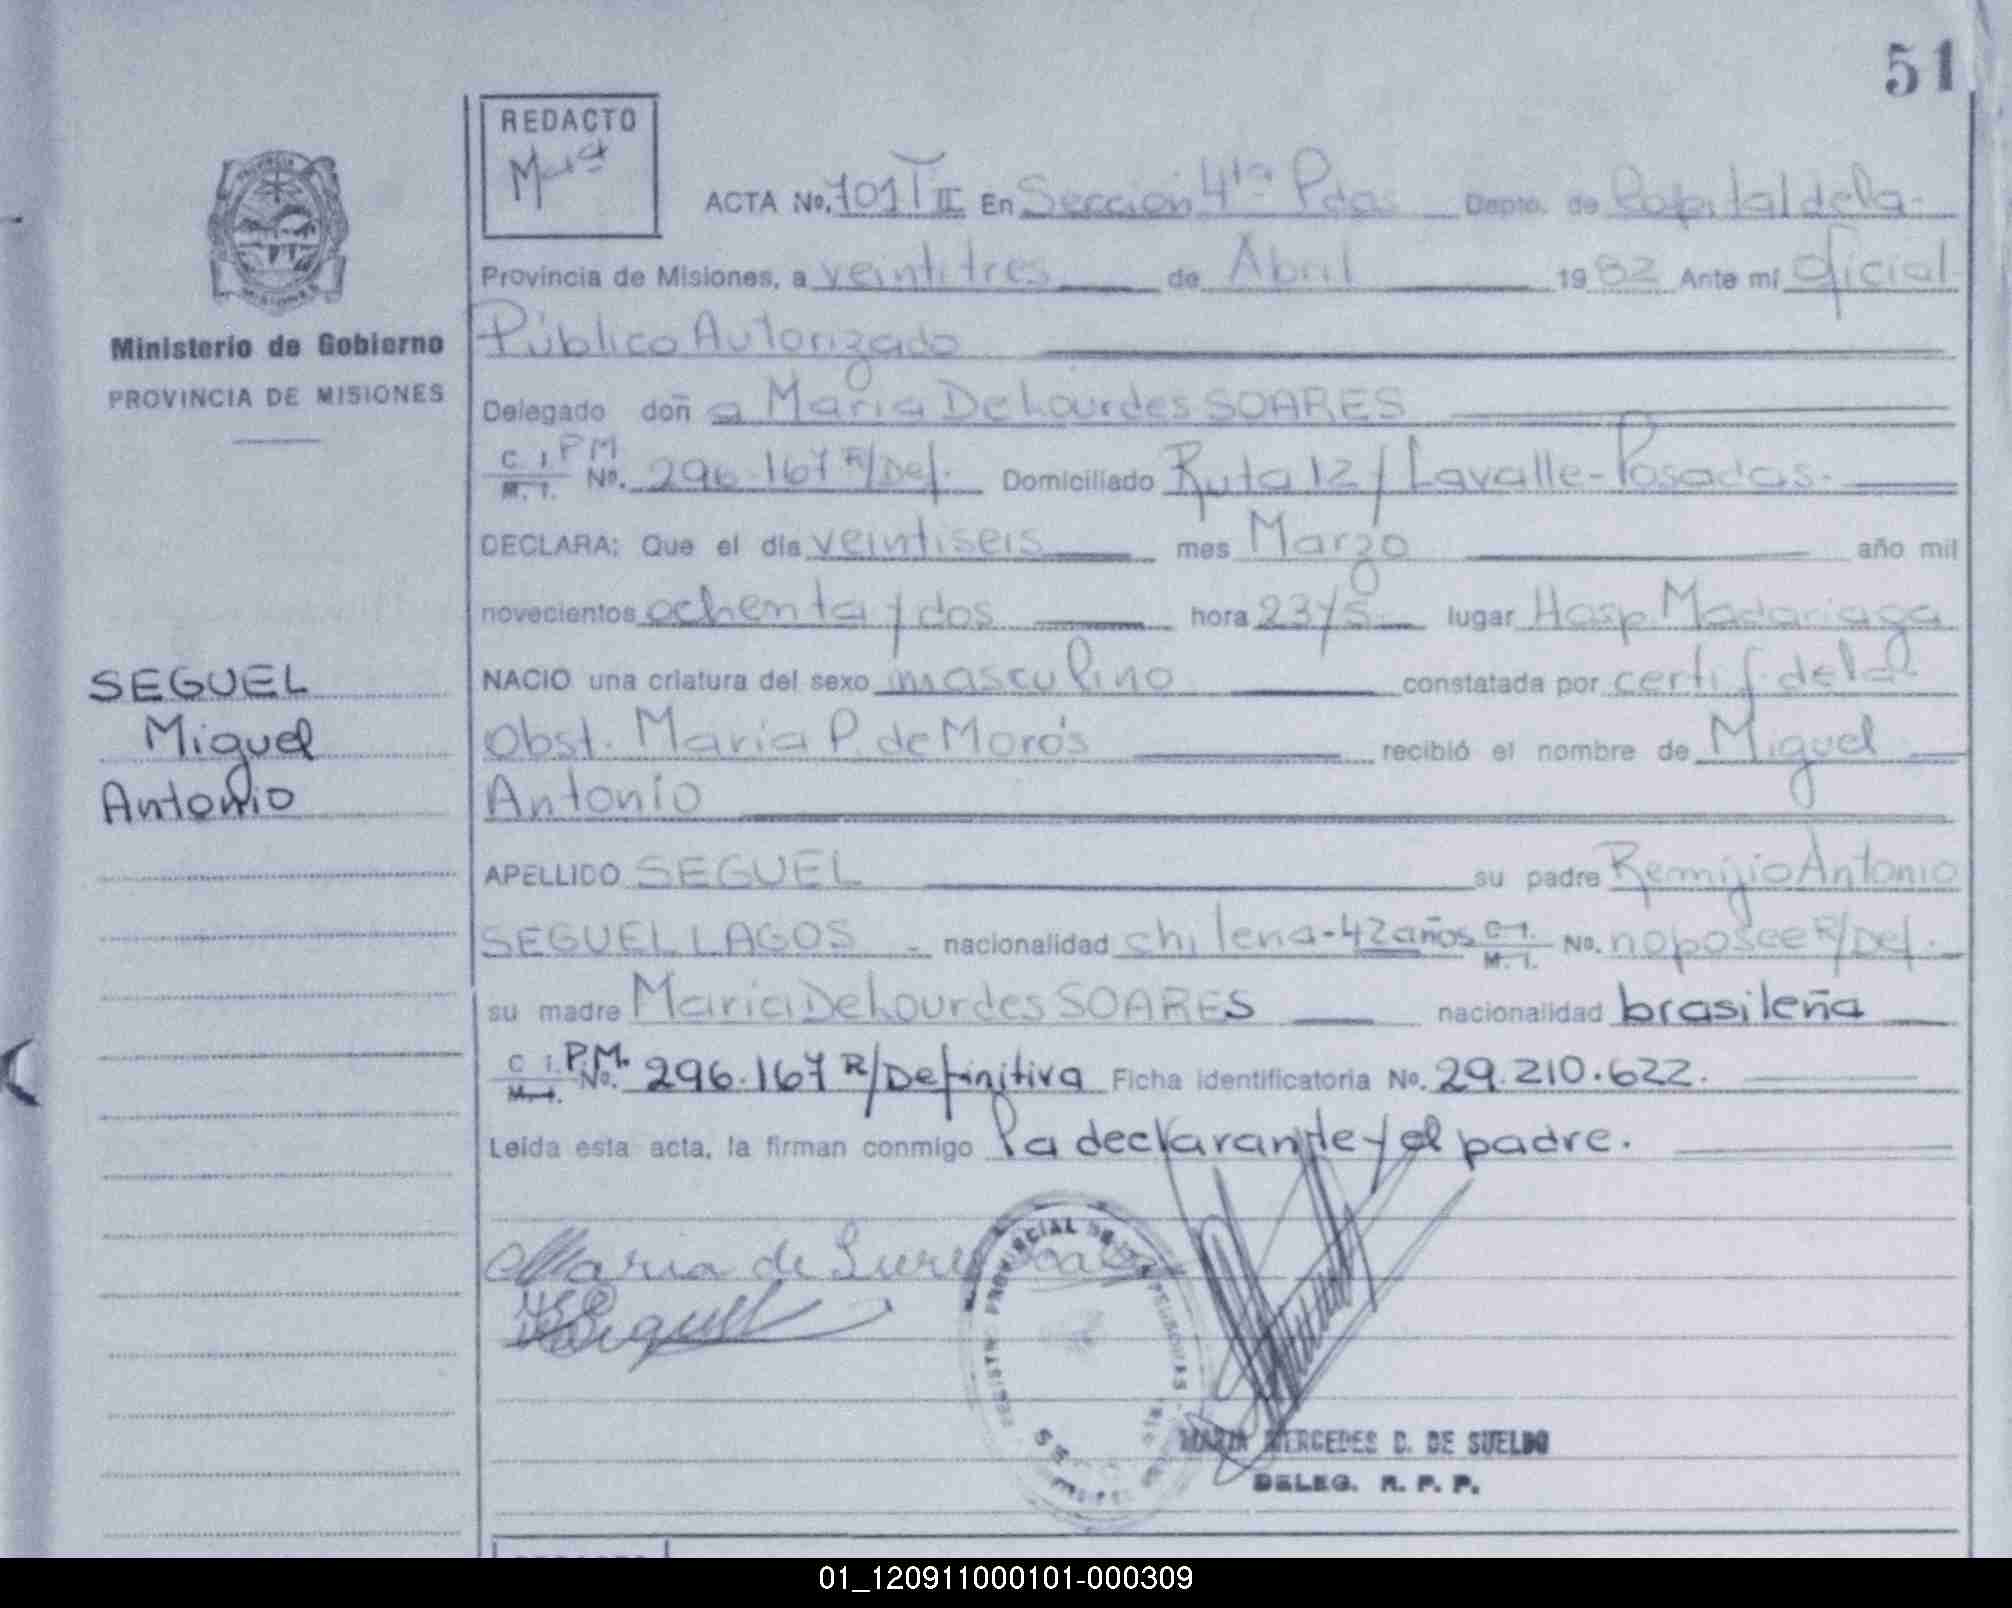 51
REDACTO
Ministerio de Gobierno
PROVINCIA DE MISIONES
SEGUEL
Miguel
Antonio
ACTA No. 701 T II En Sección 4ta Pdas Depto. de Capital de la
Provincia de Misiones, a veintitres de Abril 1982 Ante mí Oficial
Público Autorizado
Delegado doña María De Lourdes SOARES
C. I. P M No. 296.167 R/Def. Domiciliado Ruta 12 y Lavalle-Posadas.
M. I.
DECLARA: Que el día veintiseis mes Marzo año mil
novecientos ochenta y dos hora 23 y 5 lugar Hosp. Madariaga
NACIO una criatura del sexo masculino constatada por certif. de la
Obst. María P. de Morós recibió el nombre de Miguel
Antonio
APELLIDO SEGUEL su padre Remijio Antonio
SEGUEL LAGOS nacionalidad chilena - 42 años C. I. No. no posee R/Def.
M. I.
su madre María De Lourdes SOARES nacionalidad brasileña
C I. P.M. No. 296.167 R/Definitiva Ficha identificatoria No. 29.210.622.
M. I.
Leída esta acta, la firman conmigo la declarante y el padre.
Maria de
Seguel
PROVINCIAL DE
MARIA MERCEDES D. DE SUELDO
DELEG. R. P. P.
01_120911000101-000309